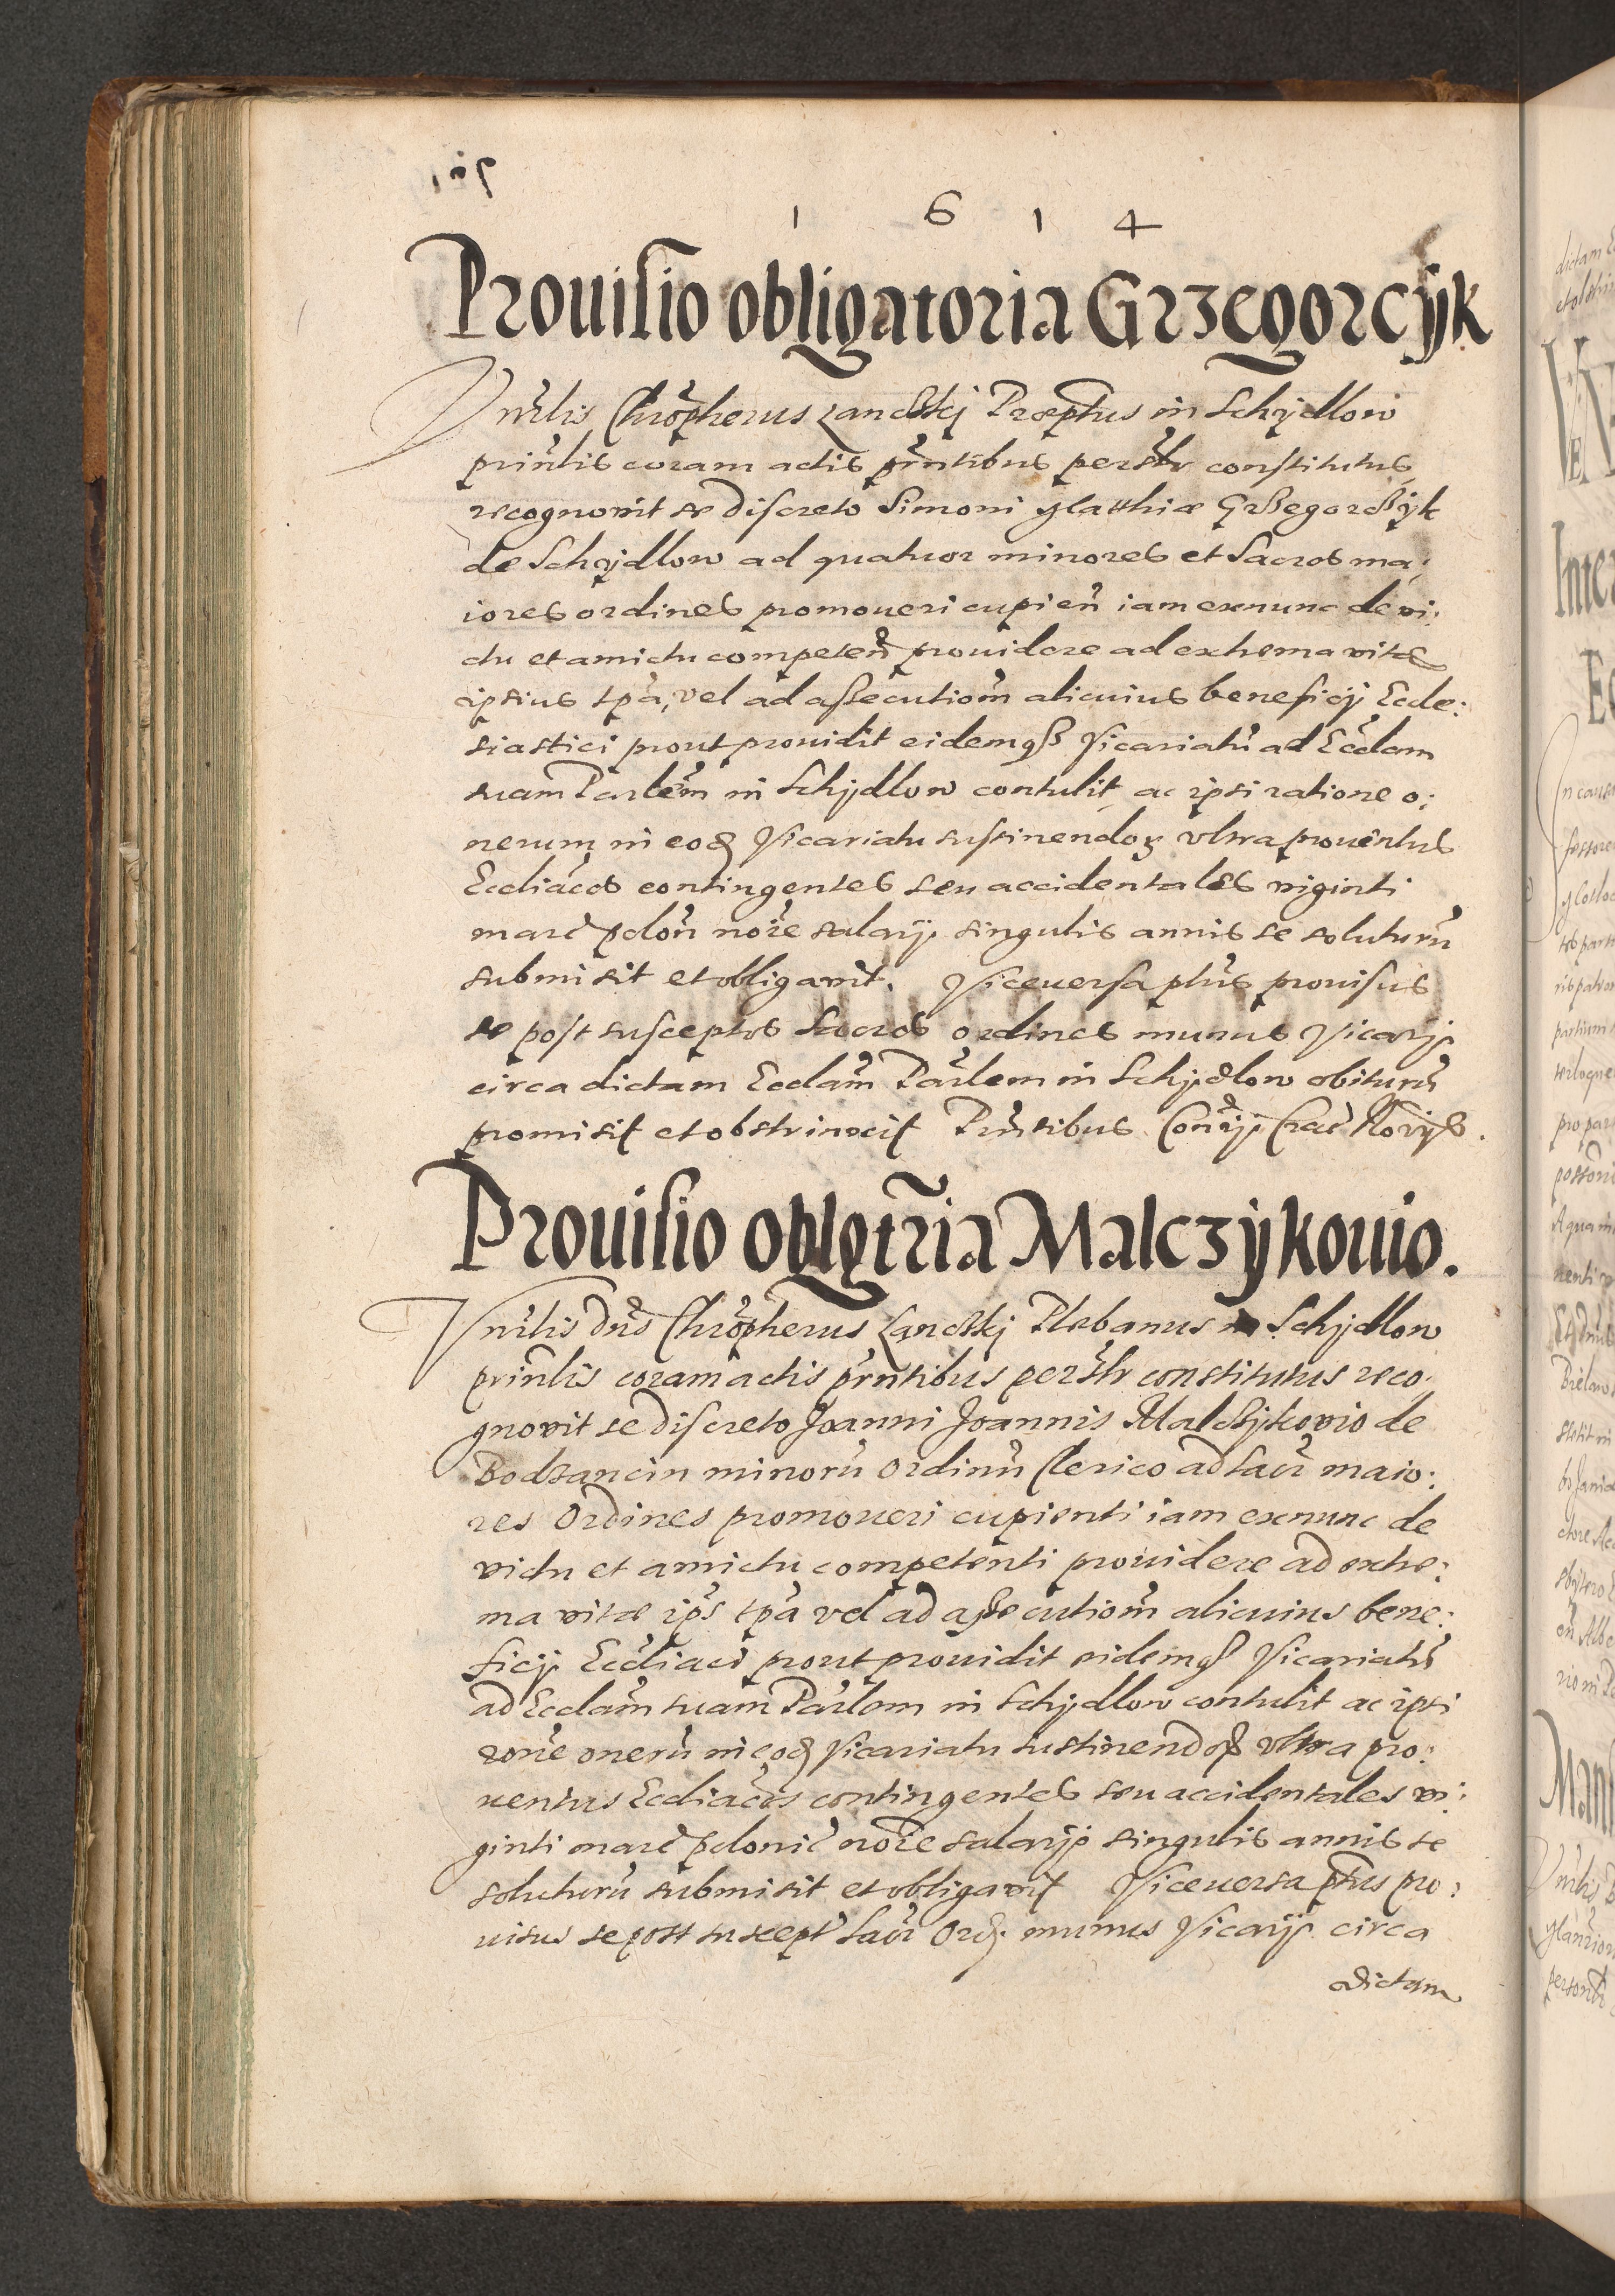 1 6 1 4
Prouisio obligatoria Grzegorcÿk
Vnrlis Chrōpherus Lanczkj Præptus in Schÿdlow
prinlis coram actis prntibus persltr constitutus
recognovit se discreto Simoni Matthiæ Grzegorczÿk
de Schÿdlow ad quatuor minores et Sacros ma:
iores ordines promoueri cupien iam exnunc de vi:
ctu et amictu competen prouidere ad extrema vitæ
ipsius tpa, vel ad assecutiom alicuius beneficij Eccle:
siastici prout prouidit eidemq3 Vicariatu ad Ecclam
suam Parlem in Schÿdlow contulit, ac ipsi ratione o:
nerum in eod Vicariatu sustinendoꝝ vltra prouentus
Eccliacos contingentes seu accidentales viginti
marc polon noie salarij singulis annis se soluturu
submisit et obligavit. Viceuersa ptus prouisus
se post susceptos Sacros ordines munus Vicarij
circa dictam Ecclam Parlem in Schÿdlow obituru
promisit et obstrinxit Prntibus
Prouisio oblgtria Malczÿkouio.
Vnrlis Dns Chrōpherus Lanczkj Plebanus in Schÿdlow
prinlis coram actis prntibus persltr constitutus reco:
gnovit se discreto Joanni Joannis Malczÿkovio de
Bodzancin minoru Ordinu Clerico ad Sacr maio:
res Ordines promoueri cupienti iam exnunc de
victu et amictu competenti prouidere ad extre:
ma vitæ ips tpa vel ad assecutiom alicuius bene:
ficij Eccliaci prout prouidit eidemq3 Vicariatu
ad Ecclam suam Parlem in Schÿdlow contulit ac ipsi
rone oneru in eod Vicariatu sustinendoꝝ vltra pro:
uentus Eccliacos contingentes seu accidentales vi:
ginti marc polonic noie salarij singulis annis se
soluturu submisit et obligavit Viceuersa ptus pro:
uisus se post suscept Sacr Ord. munus Vicarij circa
dictam